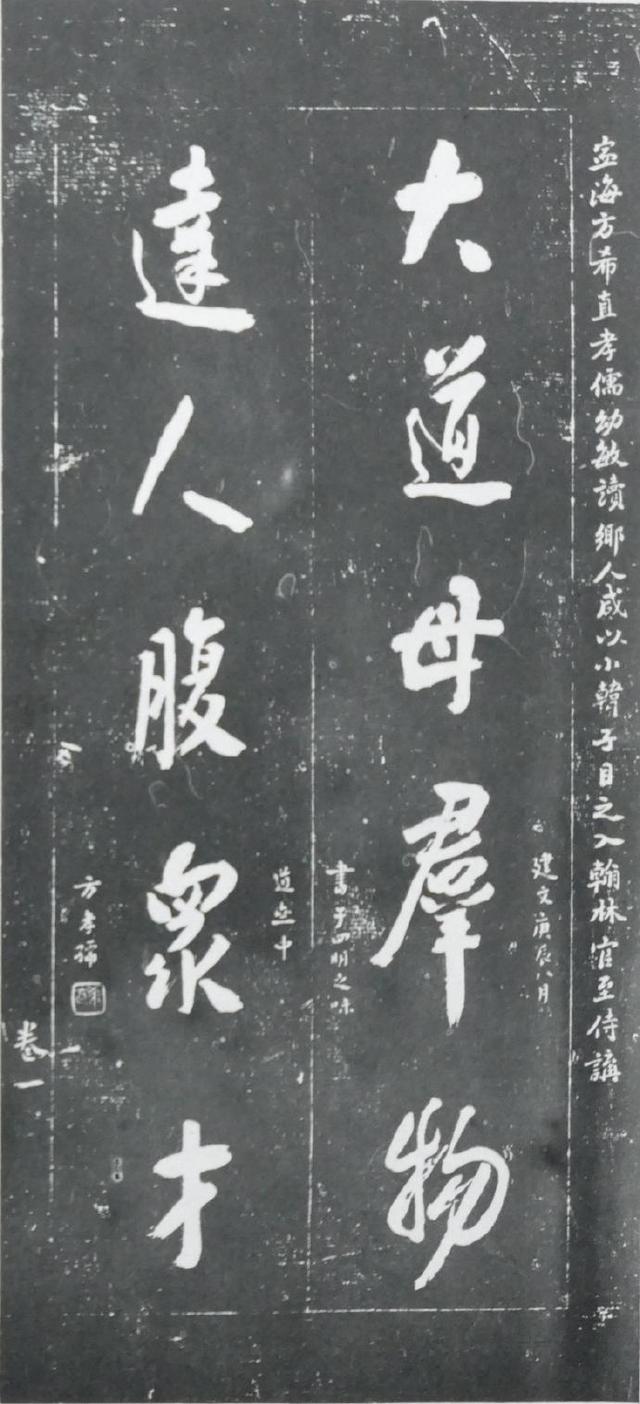 寍海方希直孝儒幼敏讀鄉人咸以小韓子目之入翰林官至侍講
大道母羣物
建文庚辰八月
書于四明之味
達人腹衆才
道亝中
方孝孺
卷一